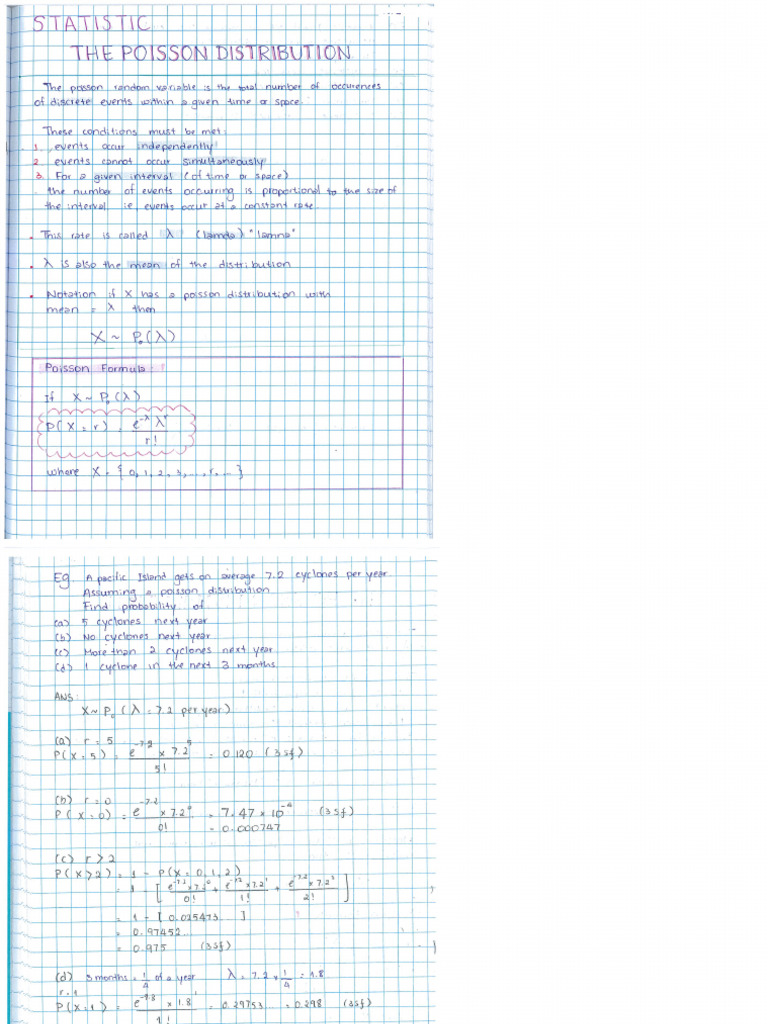 STATISTIC
THE POISSON DISTRIBUTION
The poisson random variable is the total number of occurences
of discrete events within a given time or space.
These conditions must be met:
1. events occur independently
2. events cannot occur simultaneously
3. For a given interval (of time or space)
the number of events occurring is proportional to the size of
the interval ie, events occur at a constant rate.
• This rate is called λ (lamda) "lamna"
• λ is also the mean of the distribution
• Notation if X has a poisson distribution with
mean = λ then
X ~ Po(λ)
Poisson Formula :
If X ~ Po(λ)
P(X = r) = e^-λ λ^r / r!
where X = { 0, 1, 2, 3, ..., r, ... }
Eg. A pacific Island gets on average 7.2 cyclones per year.
Assuming a poisson distribution
Find probability of
(a) 5 cyclones next year
(b) No cyclones next year
(c) More than 2 cyclones next year
(d) 1 cyclone in the next 3 months
ANS:
X ~ Po (λ = 7.2 per year)
(a) r = 5
P(X = 5) = e^-7.2 × 7.2^5 / 5! = 0.120 (3sf)
(b) r = 0
P(X = 0) = e^-7.2 × 7.2^0 / 0! = 7.47 × 10^-4 (3sf)
= 0.000747
(c) r > 2
P(X > 2) = 1 - P(X = 0, 1, 2)
= 1 - [ e^-7.2 × 7.2^0 / 0! + e^-7.2 × 7.2^1 / 1! + e^-7.2 × 7.2^2 / 2! ]
= 1 - [ 0.025473... ]
= 0.97452...
= 0.975 (3sf)
(d) 3 months = 1/4 of a year λ = 7.2 × 1/4 = 1.8
r = 1
P(X = 1) = e^-1.8 × 1.8^1 / 1! = 0.29753... = 0.298 (3sf)